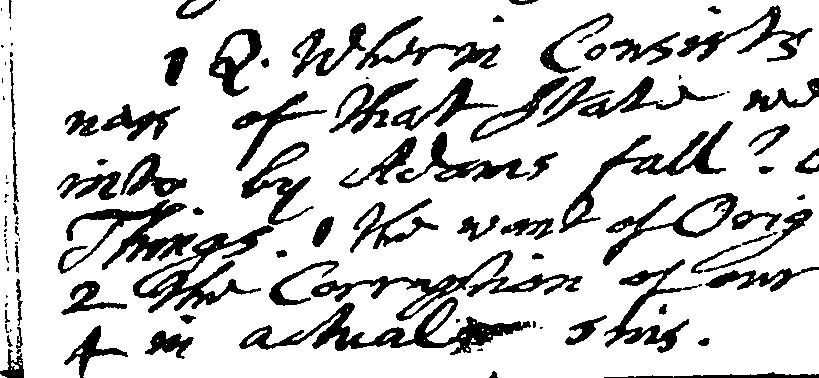 1 Q. Wherin Consists
ness of that State we
into by Adams fall?
Things. 1 the want of Orig
2 the Corruption of our
4 in actual sins.